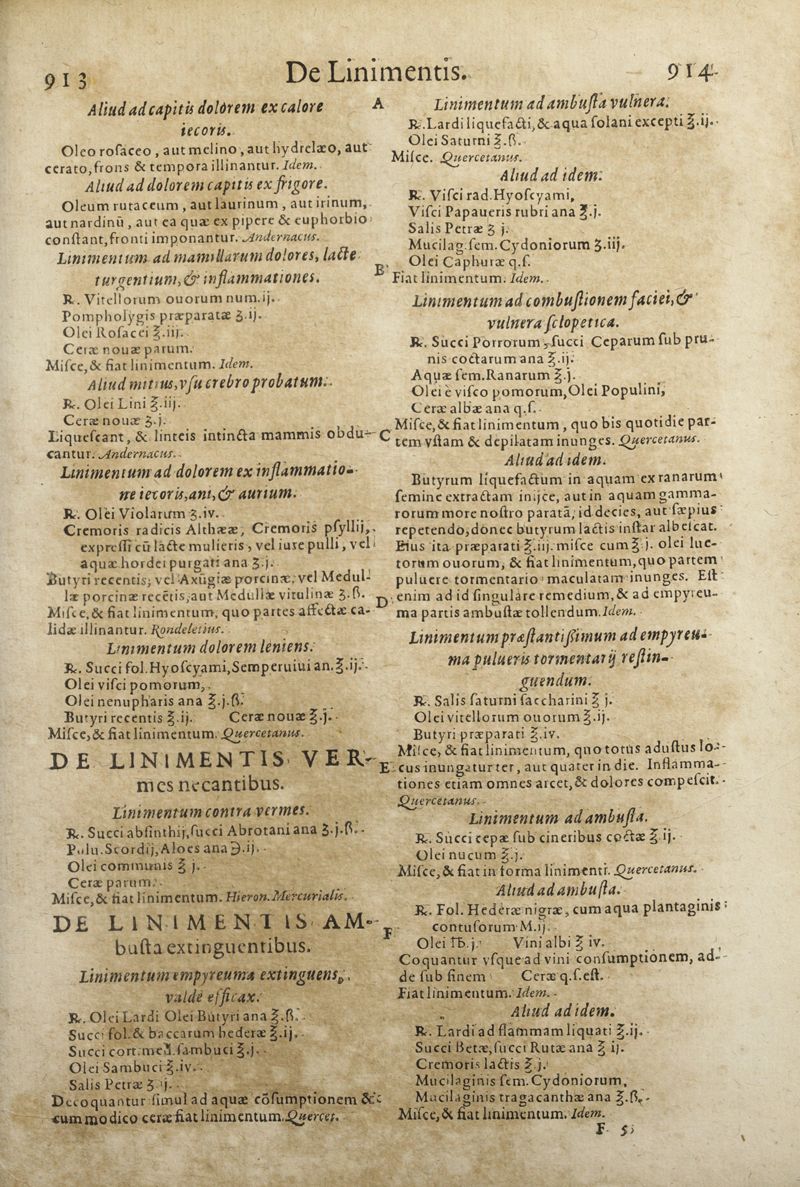 913
De Linimentis.
914
Aliud ad capitis dolorem ex calore
iecoris.
Oleo rosaceo, aut melino, aut hydrelæo, aut
cerato, frons & tempora illinantur. Idem.
Aliud ad dolorem capitis ex frigore.
Oleum rutaceum, aut laurinum, aut irinum,
aut nardinū, aut ea quæ ex pipere & euphorbio
constant, fronti imponantur. Andernacus.
Linimentum ad mamillarum dolores, lacte
turgentium, & inflammationes.
℞. Vitellorum ouorum num.ij.
Pompholygis præparatæ ʒ.ij.
Olei Rosacei ℥.iij.
Ceræ nouæ parum.
Misce, & fiat linimentum. Idem.
Aliud mitius, vsu crebro probatum.
℞. Olei Lini ℥.iij.
Ceræ nouæ ʒ.j.
Liquescant, & linteis intincta mammis obdu-
cantur. Andernacus.
Linimentum ad dolorem ex inflammatio-
ne iecoris, ani, & aurium.
℞. Olei Violarum ʒ.iv.
Cremoris radicis Althææ, Cremoris psyllij,
expressi cū lacte mulieris, vel iure pulli, vel
aquæ hordei purgati ana ʒ.j.
Butyri recentis, vel Axūgiæ porcinæ, vel Medul-
læ porcinæ recētis, aut Medullæ vitulinæ ʒ.ß.
Misce, & fiat linimentum, quo partes affectæ ca-
lidæ illinantur. Rondeletius.
Linimentum dolorem leniens.
℞. Succi fol. Hyoscyami, Semperuiui an. ℥.ij.
Olei visci pomorum,
Olei nenupharis ana ℥.j.ß.
Butyri recentis ℥.ij. Ceræ nouæ ℥.j.
Misce, & fiat linimentum. Quercetanus.
DE LINIMENTIS VER-
mes necantibus.
Linimentum contra vermes.
℞. Succi absinthij, succi Abrotani ana ʒ.j.ß.
Pulu. Scordij, Aloes ana ℈.ij.
Olei communis ℥ j.
Ceræ parum.
Misce, & fiat linimentum. Hieron. Mercurialis.
DE LINIMENTIS AM-
busta extinguentibus.
Linimentum empyreuma extinguens,
valdè efficax.
℞. Olei Lardi Olei Butyri ana ℥.ß.
Succi fol. & baccarum hederæ ℥.ij.
Succi cort. med. sambuci ℥.j.
Olei Sambuci ℥.iv.
Salis Petræ ʒ ij.
Decoquantur simul ad aquæ cōsumptionem &
cum modico ceræ fiat linimentum. Quercet.
A
Linimentum ad ambusta vulnera.
℞. Lardi liquefacti, & aqua solani excepti ℥.ij.
Olei Saturni ℥.ß.
Misce. Quercetanus.
Aliud ad idem.
℞. Visci rad. Hyoscyami,
Visci Papaueris rubri ana ℥.j.
Salis Petræ ʒ j.
Mucilag. sem. Cydoniorum ʒ.iij.
B
Olei Caphuræ q.s.
Fiat linimentum. Idem.
Linimentum ad combustionem faciei, &
vulnera sclopetica.
℞. Succi Porrorum, succi Ceparum sub pru-
nis coctarum ana ℥.ij.
Aquæ sem. Ranarum ℥.j.
Olei è visco pomorum, Olei Populini,
Ceræ albæ ana q.s.
C
Misce, & fiat linimentum, quo bis quotidie par-
tem vstam & depilatam inunges. Quercetanus.
Aliud ad idem.
Butyrum liquefactum in aquam ex ranarum
semine extractam inijce, aut in aquam gamma-
rorum more nostro paratā, id decies, aut sæpius
repetendo, donec butyrum lactis instar albescat.
Huius ita præparati ℥.iij. misce cum ℥ j. olei lue-
torum ouorum, & fiat linimentum, quo partem
puluere tormentario maculatam inunges. Est
D
enim ad id singulare remedium, & ad empyreu-
ma partis ambustæ tollendum. Idem.
Linimentum præstantissimum ad empyreu-
ma pulueris tormentarij restin-
guendum.
℞. Salis saturni saccharini ℥ j.
Olei vitellorum ouorum ℥.ij.
Butyri præparati ℥.iv.
Misce, & fiat linimentum, quo totus adustus lo-
E
cus inungatur ter, aut quater in die. Inflamma-
tiones etiam omnes arcet, & dolores compescit.
Quercetanus.
Linimentum ad ambusta.
℞. Succi cepæ sub cineribus coctæ ℥ ij.
Olei nucum ℥.j.
Misce, & fiat in forma linimenti. Quercetanus.
Aliud ad ambusta.
℞. Fol. Hederæ nigræ, cum aqua plantaginis
F
contusorum M.ij.
Olei ℔.j. Vini albi ℥ iv.
Coquantur vsque ad vini consumptionem, ad-
de sub finem Ceræ q.s. est.
Fiat linimentum. Idem.
Aliud ad idem.
℞. Lardi ad flammam liquati ℥.ij.
Succi Betæ, succi Rutæ ana ℥ ij.
Cremoris lactis ℥.j.
Mucilaginis sem. Cydoniorum,
Mucilaginis tragacanthæ ana ℥.ß.
Misce, & fiat linimentum. Idem.
F 5